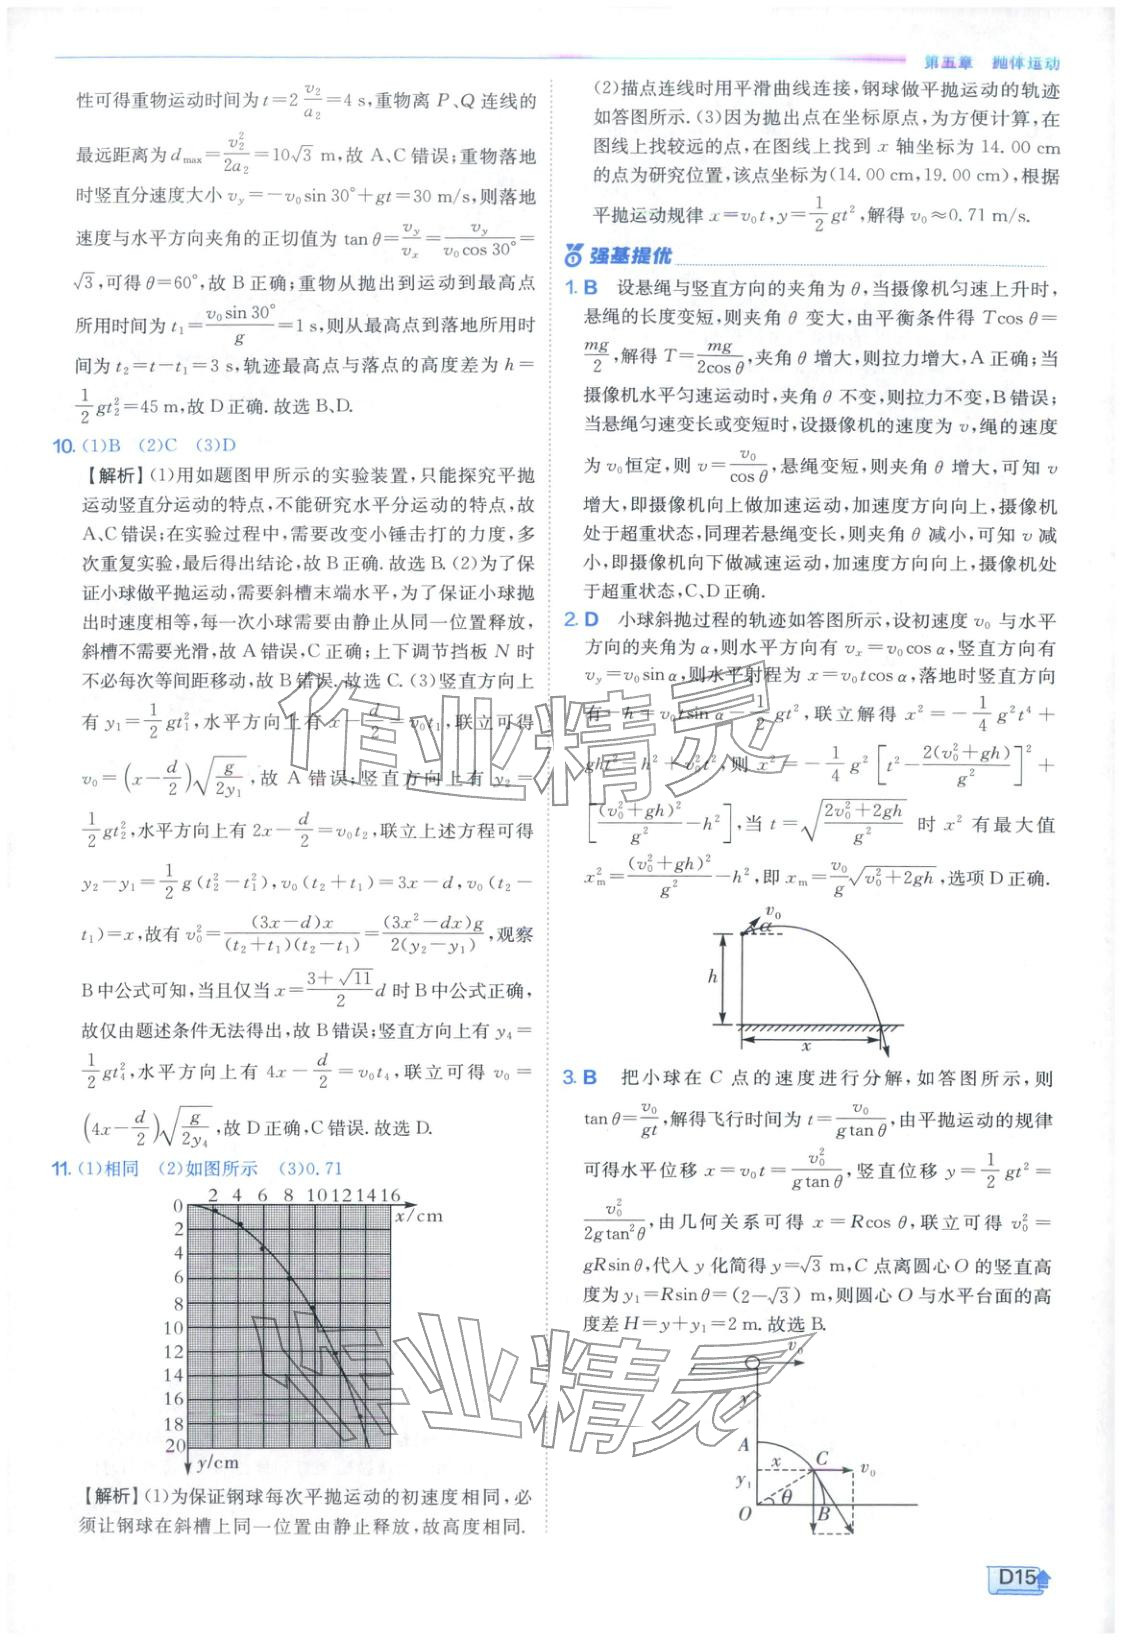 第五章 抛体运动
性可得重物运动时间为 t=2 v₂/a₂=4 s,重物离 P、Q 连线的
最远距离为 d_max=v₂²/2a₂=10√3 m,故 A、C 错误;重物落地
时竖直分速度大小 v_y=-v₀sin 30°+gt=30 m/s,则落地
速度与水平方向夹角的正切值为 tan θ=v_y/v_x=v_y/(v₀cos 30°)=
√3,可得 θ=60°,故 B 正确;重物从抛出到运动到最高点
所用时间为 t₁=v₀sin 30°/g=1 s,则从最高点到落地所用时
间为 t₂=t-t₁=3 s,轨迹最高点与落点的高度差为 h=
1/2 gt₂²=45 m,故 D 正确.故选 B、D.
10. (1)B (2)C (3)D
【解析】(1)用如题图甲所示的实验装置,只能探究平抛
运动竖直分运动的特点,不能研究水平分运动的特点,故
A、C 错误;在实验过程中,需要改变小锤击打的力度,多
次重复实验,最后得出结论,故 B 正确.故选 B.(2)为了保
证小球做平抛运动,需要斜槽末端水平,为了保证小球抛
出时速度相等,每一次小球需要由静止从同一位置释放,
斜槽不需要光滑,故 A 错误,C 正确;上下调节挡板 N 时
不必每次等间距移动,故 B 错误.故选 C.(3)竖直方向上
有 y₁=1/2 gt₁²,水平方向上有 x-d/2=v₀t₁,联立可得
v₀=(x-d/2)√(g/2y₁),故 A 错误;竖直方向上有 y₂=
1/2 gt₂²,水平方向上有 2x-d/2=v₀t₂,联立上述方程可得
y₂-y₁=1/2 g(t₂²-t₁²),v₀(t₂+t₁)=3x-d,v₀(t₂-
t₁)=x,故有 v₀²=(3x-d)x/((t₂+t₁)(t₂-t₁))=(3x²-dx)g/(2(y₂-y₁)),观察
B 中公式可知,当且仅当 x=(3+√11)/2 d 时 B 中公式正确,
故仅由题述条件无法得出,故 B 错误;竖直方向上有 y₄=
1/2 gt₄²,水平方向上有 4x-d/2=v₀t₄,联立可得 v₀=
(4x-d/2)√(g/2y₄),故 D 正确,C 错误.故选 D.
11. (1)相同 (2)如图所示 (3)0.71
2 4 6 8 10 12 14 16
x/cm
0
2
4
6
8
10
12
14
16
18
20
y/cm
【解析】(1)为保证钢球每次平抛运动的初速度相同,必
须让钢球在斜槽上同一位置由静止释放,故高度相同.
(2)描点连线时用平滑曲线连接,钢球做平抛运动的轨迹
如答图所示.(3)因为抛出点在坐标原点,为方便计算,在
图线上找较远的点,在图线上找到 x 轴坐标为 14.00 cm
的点为研究位置,该点坐标为(14.00 cm,19.00 cm),根据
平抛运动规律 x=v₀t,y=1/2 gt²,解得 v₀≈0.71 m/s.
强基提优
1. B 设悬绳与竖直方向的夹角为 θ,当摄像机匀速上升时,
悬绳的长度变短,则夹角 θ 变大,由平衡条件得 Tcos θ=
mg/2,解得 T=mg/(2cos θ),夹角 θ 增大,则拉力增大,A 正确;当
摄像机水平匀速运动时,夹角 θ 不变,则拉力不变,B 错误;
当悬绳匀速变长或变短时,设摄像机的速度为 v,绳的速度
为 v₀恒定,则 v=v₀/cos θ,悬绳变短,则夹角 θ 增大,可知 v
增大,即摄像机向上做加速运动,加速度方向向上,摄像机
处于超重状态,同理若悬绳变长,则夹角 θ 减小,可知 v 减
小,即摄像机向下做减速运动,加速度方向向上,摄像机处
于超重状态,C、D 正确.
2. D 小球斜抛过程的轨迹如答图所示,设初速度 v₀ 与水平
方向的夹角为 α,则水平方向有 v_x=v₀cos α,竖直方向有
v_y=v₀sin α,则水平射程为 x=v₀tcos α,落地时竖直方向
有-h=v₀tsin α-1/2 gt²,联立解得 x²=-1/4 g²t⁴+
ght²-h²+v₀²t²,则 x²=-1/4 g²[t²-2(v₀²+gh)/g²]²+
[(v₀²+gh)²/g²-h²],当 t=√((2v₀²+2gh)/g²) 时 x² 有最大值
x_m²=(v₀²+gh)²/g²-h²,即 x_m=v₀/g √(v₀²+2gh),选项 D 正确.
v₀
α
h
x
3. B 把小球在 C 点的速度进行分解,如答图所示,则
tan θ=v₀/gt,解得飞行时间为 t=v₀/(gtan θ),由平抛运动的规律
可得水平位移 x=v₀t=v₀²/(gtan θ),竖直位移 y=1/2 gt²=
v₀²/(2gtan²θ),由几何关系可得 x=Rcos θ,联立可得 v₀²=
gRsin θ,代入 y 化简得 y=√3 m,C 点离圆心 O 的竖直高
度为 y₁=Rsin θ=(2-√3) m,则圆心 O 与水平台面的高
度差 H=y+y₁=2 m.故选 B.
v₀
y
A
x
C
v₀
y₁
θ
O
B
作业精灵
作业精灵
D15